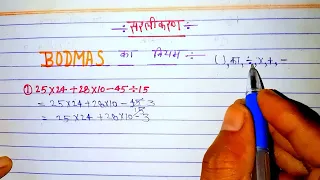 ÷ सरलीकरण ÷
BODMAS का नियम ÷ ( ), का, ÷, ×, +, −
① 25×24+28×10−45÷15
= 25×24+28×10−3
= 25×24+28×10−3